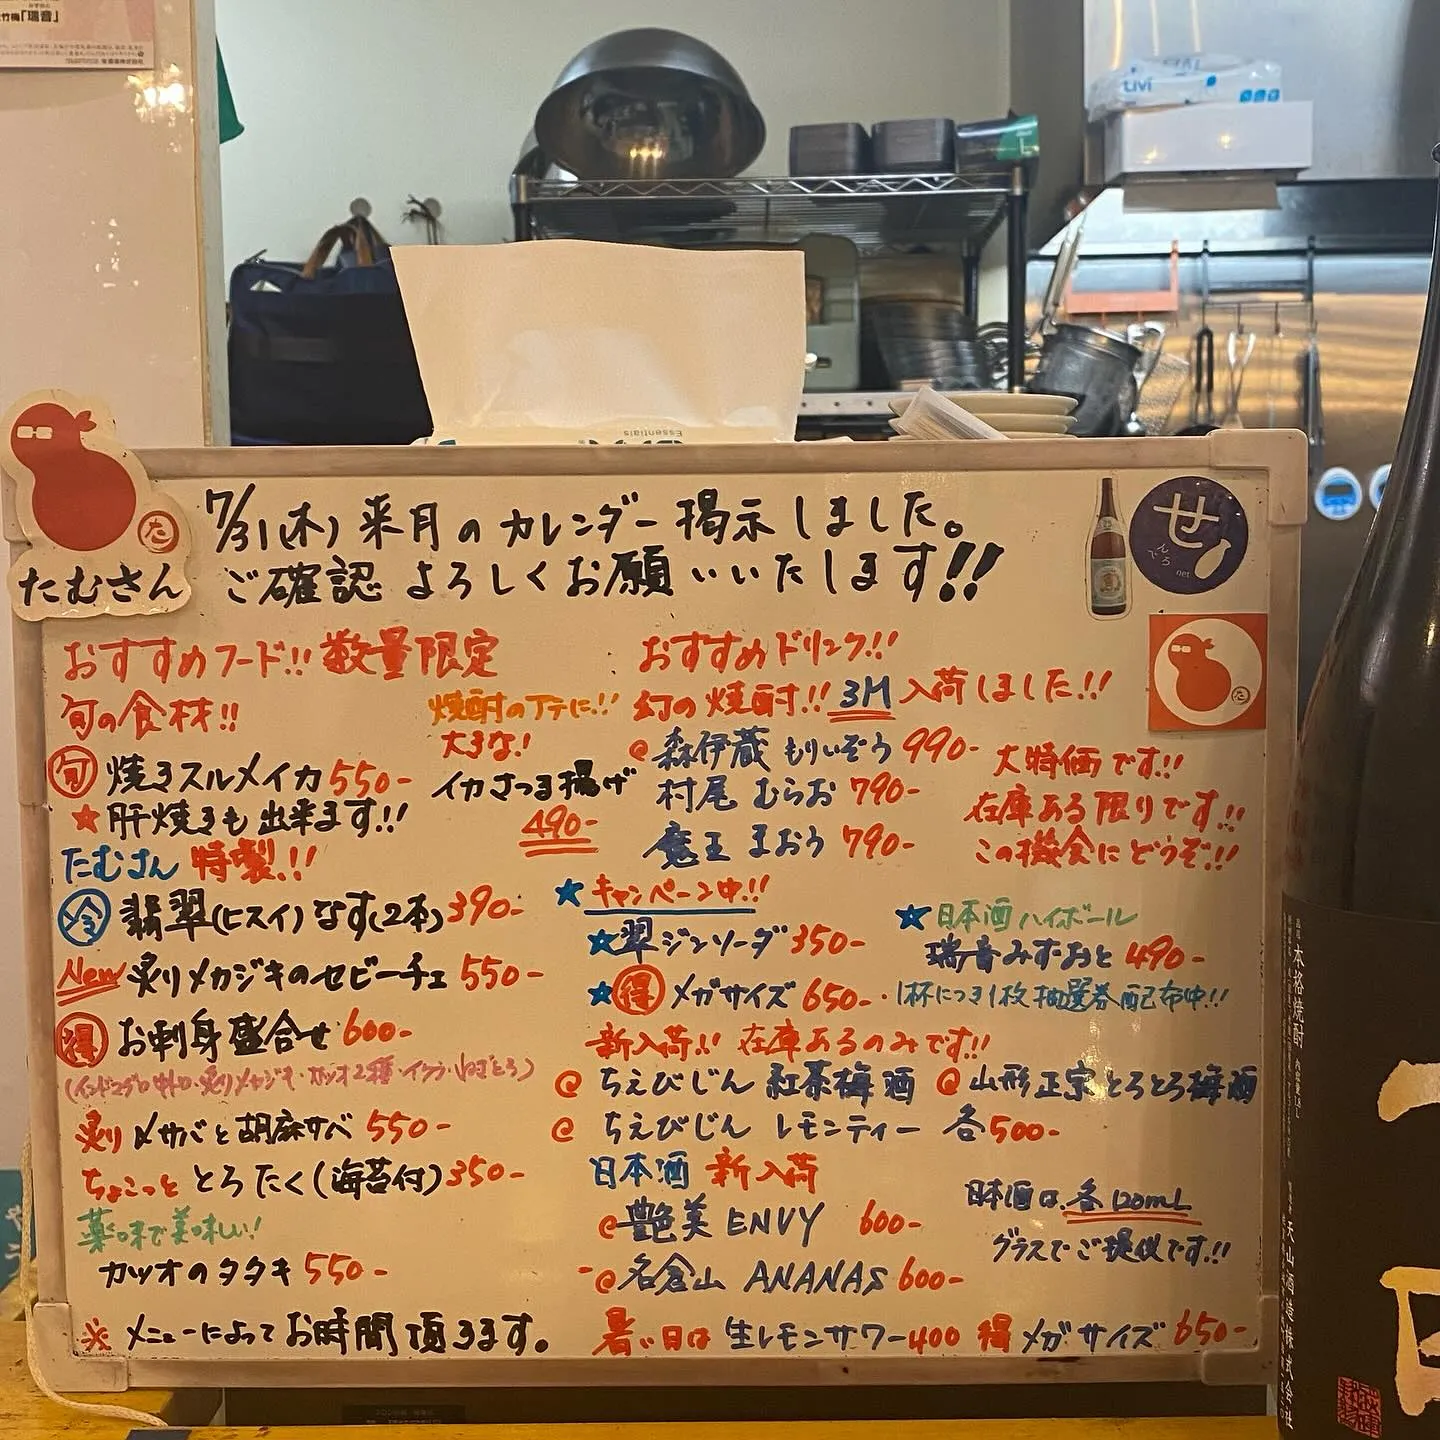 竹梅「瑞音」
LIVI
Essentials
たむさん
た
7/31(木)来月のカレンダー掲示しました。
ご確認よろしくお願いいたします!!
せ
でんろう
net
おすすめフード!!数量限定
旬の食材!!
旬 焼きスルメイカ550-
★肝焼きも出来ます!!
焼酎のアテに!!
大きな!
イカさつま揚げ
490-
たむさん特製!!
冷 翡翠(ヒスイ)なす(2本)390-
New 炙りメカジキのセビーチェ550-
得 お刺身盛合せ600-
(インドマグロ中トロ・炙りメカジキ・カツオ2種・イクラ・ねぎとろ)
炙りメサバと胡麻サバ550-
ちょこっととろたく(海苔付)350-
薬味で美味しい!
カツオのタタキ550-
※メニューによってお時間頂きます。
おすすめドリンク!!
幻の焼酎!!3M入荷しました!!
@森伊蔵 もりいぞう990-
村尾 むらお790-
魔王 まおう790-
大特価です!!
在庫ある限りです!!
この機会にどうぞ!!
★キャンペーン中!!
★翠ジンソーダ350-
★得メガサイズ650-
★日本酒ハイボール
瑞音みずおと490-
・1杯につき1枚抽選券配布中!!
新入荷!!在庫あるのみです!!
@ちえびじん 紅茶梅酒 @山形正宗とろとろ梅酒
@ちえびじん レモンティー 各500-
日本酒 新入荷
@艶美 ENVY 600-
-@名倉山 ANANAS 600-
日本酒は各120mL
グラスでご提供です!!
暑い日は 生レモンサワー400 得 メガサイズ650-
本格焼酎
天山酒造株式会社